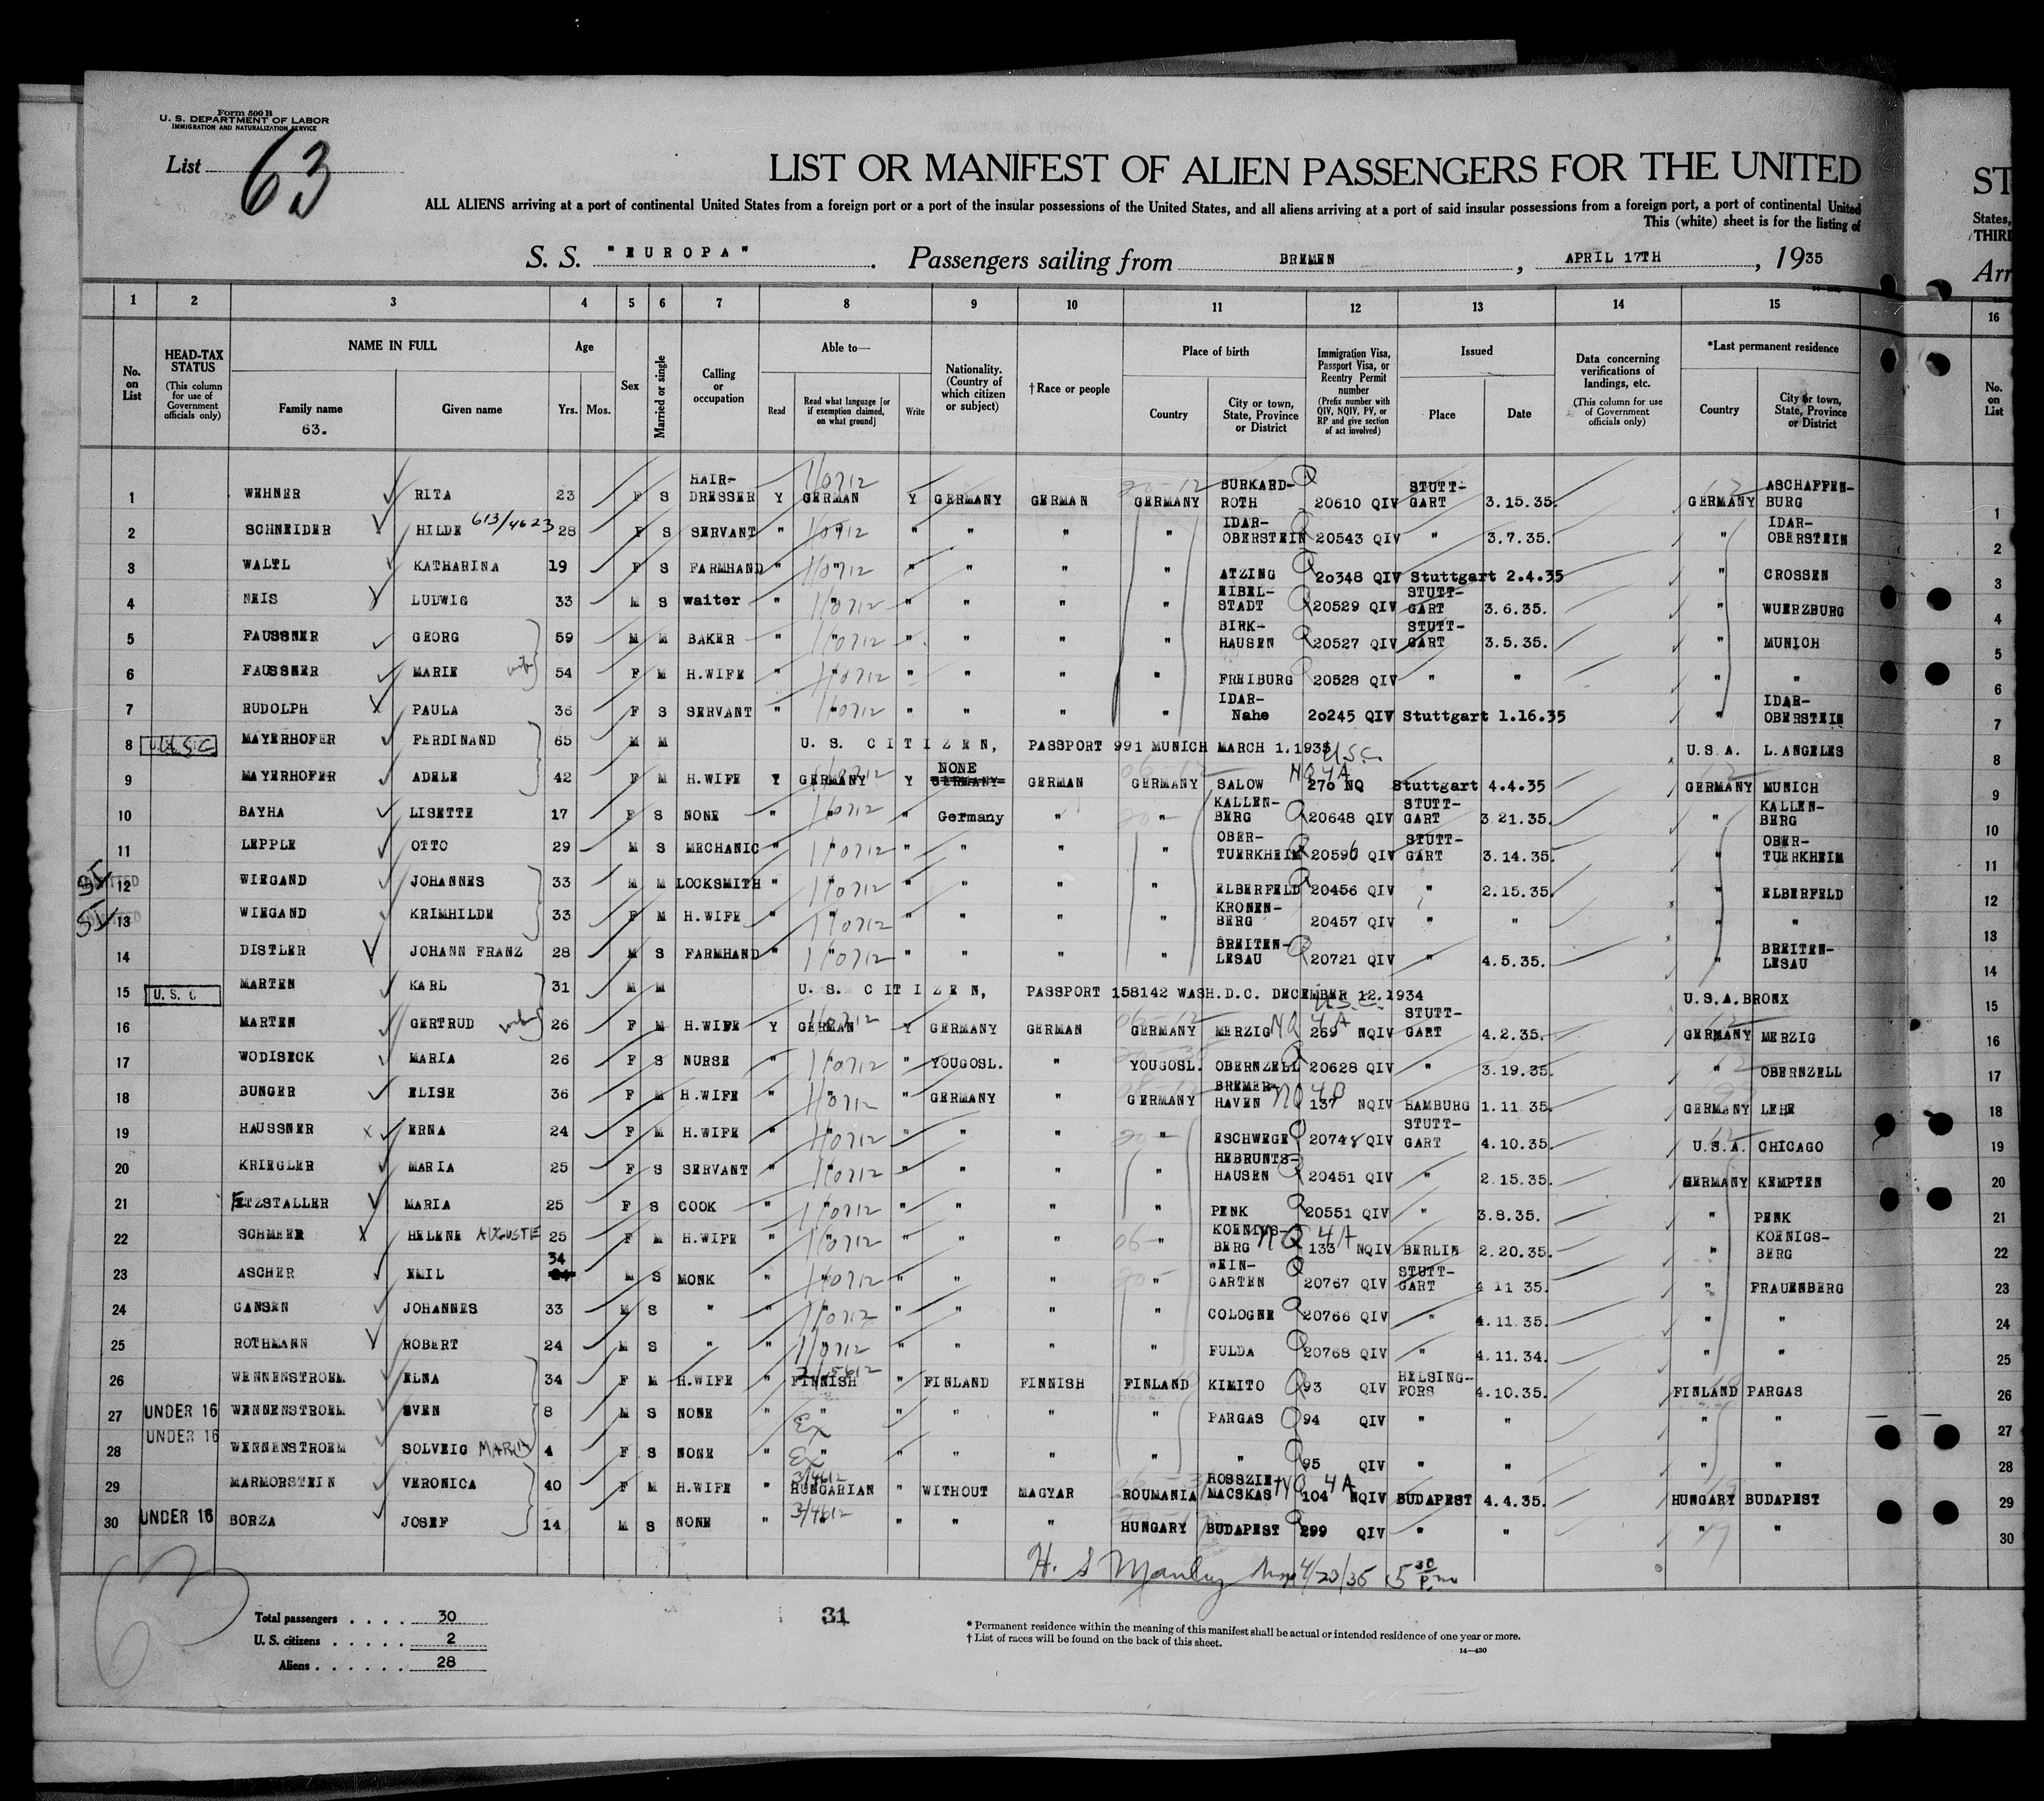 Form 500 B
U. S. DEPARTMENT OF LABOR
IMMIGRATION AND NATURALIZATION SERVICE
List 63
LIST OR MANIFEST OF ALIEN PASSENGERS FOR THE UNITED
ST
ALL ALIENS arriving at a port of continental United States from a foreign port or a port of the insular possessions of the United States, and all aliens arriving at a port of said insular possessions from a foreign port, a port of continental United
States,
This (white) sheet is for the listing of
THIRD
S. S. "EUROPA". Passengers sailing from BREMEN, APRIL 17TH, 1935
Arr
1 2 3 4 5 6 7 8 9 10 11 12 13 14 15 16
No. on List
HEAD-TAX STATUS (This column for use of Government officials only)
NAME IN FULL
Family name 63.
Given name
Age Yrs. Mos.
Sex
Married or single
Calling or occupation
Able to— Read
Read what language [or if exemption claimed, on what ground]
Write
Nationality. (Country of which citizen or subject)
† Race or people
Place of birth
Country
City or town, State, Province or District
Immigration Visa, Passport Visa, or Reentry Permit number (Prefix number with QIV, NQIV, PV, or RP and give section of act involved)
Issued
Place
Date
Data concerning verifications of landings, etc. (This column for use of Government officials only)
*Last permanent residence
Country
City or town, State, Province or District
No. on List
1 WEHNER RITA 23 F S HAIR-DRESSER Y GERMAN Y GERMANY GERMAN GERMANY BURKARD-ROTH 20610 QIV STUTT-GART 3.15.35. GERMANY ASCHAFFEN-BURG 1
2 SCHNEIDER HILDE 613/4623 28 F S SERVANT " " " " " " IDAR-OBERSTEIN 20543 QIV " 3.7.35. " IDAR-OBERSTEIN 2
3 WALTL KATHARINA 19 F S FARMHAND " " " " " " ATZING 20348 QIV Stuttgart 2.4.35 " CROSSEN 3
4 NEIS LUDWIG 33 M S waiter " " " " " " EIBEL-STADT 20529 QIV STUTT-GART 3.6.35. " WUERZBURG 4
5 FAUSSNER GEORG 59 M M BAKER " " " " " " BIRK-HAUSEN 20527 QIV STUTT-GART 3.5.35. " MUNICH 5
6 FAUSSNER MARIE wife 54 F M H.WIFE " " " " " " FREIBURG 20528 QIV " " " " 6
7 RUDOLPH PAULA 36 F S SERVANT " " " " " " IDAR-Nahe 20245 QIV Stuttgart 1.16.35 " IDAR-OBERSTEIN 7
8 U.S.C MAYERHOFER FERDINAND 65 M M U. S. CITIZEN, PASSPORT 991 MUNICH MARCH 1.1935 U.S.A. L.ANGELES 8
9 MAYERHOFER ADELE 42 F M H.WIFE Y GERMANY Y NONE GERMANY GERMAN GERMANY SALOW U.S.C. NQ 4A 270 NQ Stuttgart 4.4.35 GERMANY MUNICH 9
10 BAYHA LISETTE 17 F S NONE " " " Germany " " KALLEN-BERG 20648 QIV STUTT-GART 3.21.35. " KALLEN-BERG 10
11 LEPPLE OTTO 29 M S MECHANIC " " " " " " OBER-TUERKHEIM 20596 QIV STUTT-GART 3.14.35. " OBER-TUERKHEIM 11
SI 12 WIEGAND JOHANNES 33 M M LOCKSMITH " " " " " " ELBERFELD 20456 QIV " 2.15.35. " ELBERFELD 12
SI 13 WIEGAND KRIMHILDE 33 F M H.WIFE " " " " " " KRONEN-BERG 20457 QIV " " " " 13
14 DISTLER JOHANN FRANZ 28 M S FARMHAND " " " " " " BREITEN-LESAU 20721 QIV " 4.5.35. " BREITEN-LESAU 14
15 U. S. C MARTEN KARL 31 M M U. S. CITIZEN, PASSPORT 158142 WASH.D.C. DECEMBER 12.1934 U.S.A. BRONX 15
16 MARTEN GERTRUD wife 26 F M H.WIFE Y GERMAN Y GERMANY GERMAN GERMANY MERZIG U.S.C. NQ 4A 269 NQIV STUTT-GART 4.2.35. GERMANY MERZIG 16
17 WODISECK MARIA 26 F S NURSE " " " YOUGOSL. " YOUGOSL. OBERNZELL 20628 QIV " 3.19.35. " OBERNZELL 17
18 BUNGER ELISE 36 F M H.WIFE " " " GERMANY " GERMANY BREMER-HAVEN 137 NQIV HAMBURG 1.11.35. GERMANY LEHE 18
19 HAUSSNER ERNA 24 F M H.WIFE " " " " " " ESCHWEGE 20748 QIV STUTT-GART 4.10.35. U.S.A. CHICAGO 19
20 KRIEGLER MARIA 25 F S SERVANT " " " " " " HEBRUNTS-HAUSEN 20451 QIV " 2.15.35. GERMANY KEMPTEN 20
21 ETZSTALLER MARIA 25 F S COOK " " " " " " PENK 20551 QIV " 3.8.35. " PENK 21
22 SCHMEER HELENE AUGUSTE 25 F M H.WIFE " " " " " " KOENIGS-BERG NQ 4A 133 NQIV BERLIN 2.20.35. " KOENIGS-BERG 22
23 ASCHER EMIL 34 M S MONK " " " " " " WEIN-GARTEN 20767 QIV STUTT-GART 4 11 35. " FRAUENBERG 23
24 CANSEN JOHANNES 33 M S " " " " " " " COLOGNE 20766 QIV " 4.11.35. " " 24
25 ROTHMANN ROBERT 24 M S " " " " " " " FULDA 20768 QIV " 4.11.34. " " 25
26 WENNENSTROEM ELNA 34 F M H.WIFE " FINNISH " FINLAND FINNISH FINLAND KIMITO 93 QIV HELSING-FORS 4.10.35. FINLAND PARGAS 26
27 UNDER 16 WENNENSTROEM SVEN 8 M S NONE " " Ex " " " " PARGAS 94 QIV " " " " 27
28 UNDER 16 WENNENSTROEM SOLVEIG MARIA 4 F S NONE " " Ex " " " " " 95 QIV " " " " 28
29 MARMORSTEIN VERONICA 40 F M H.WIFE " HUNGARIAN " WITHOUT MAGYAR ROUMANIA HOSSZIE-MACSKAS NQ 4A 104 NQIV BUDAPEST 4.4.35. HUNGARY BUDAPEST 29
30 UNDER 16 BORZA JOSEF 14 M S NONE " " " " " HUNGARY BUDAPEST 299 QIV " " " " 30
H. S Manley 4/23/35 5 30 P.m
63
Total passengers . . . . 30
U. S. citizens . . . . . 2
Aliens . . . . . . 28
31
* Permanent residence within the meaning of this manifest shall be actual or intended residence of one year or more.
† List of races will be found on the back of this sheet.
14—430